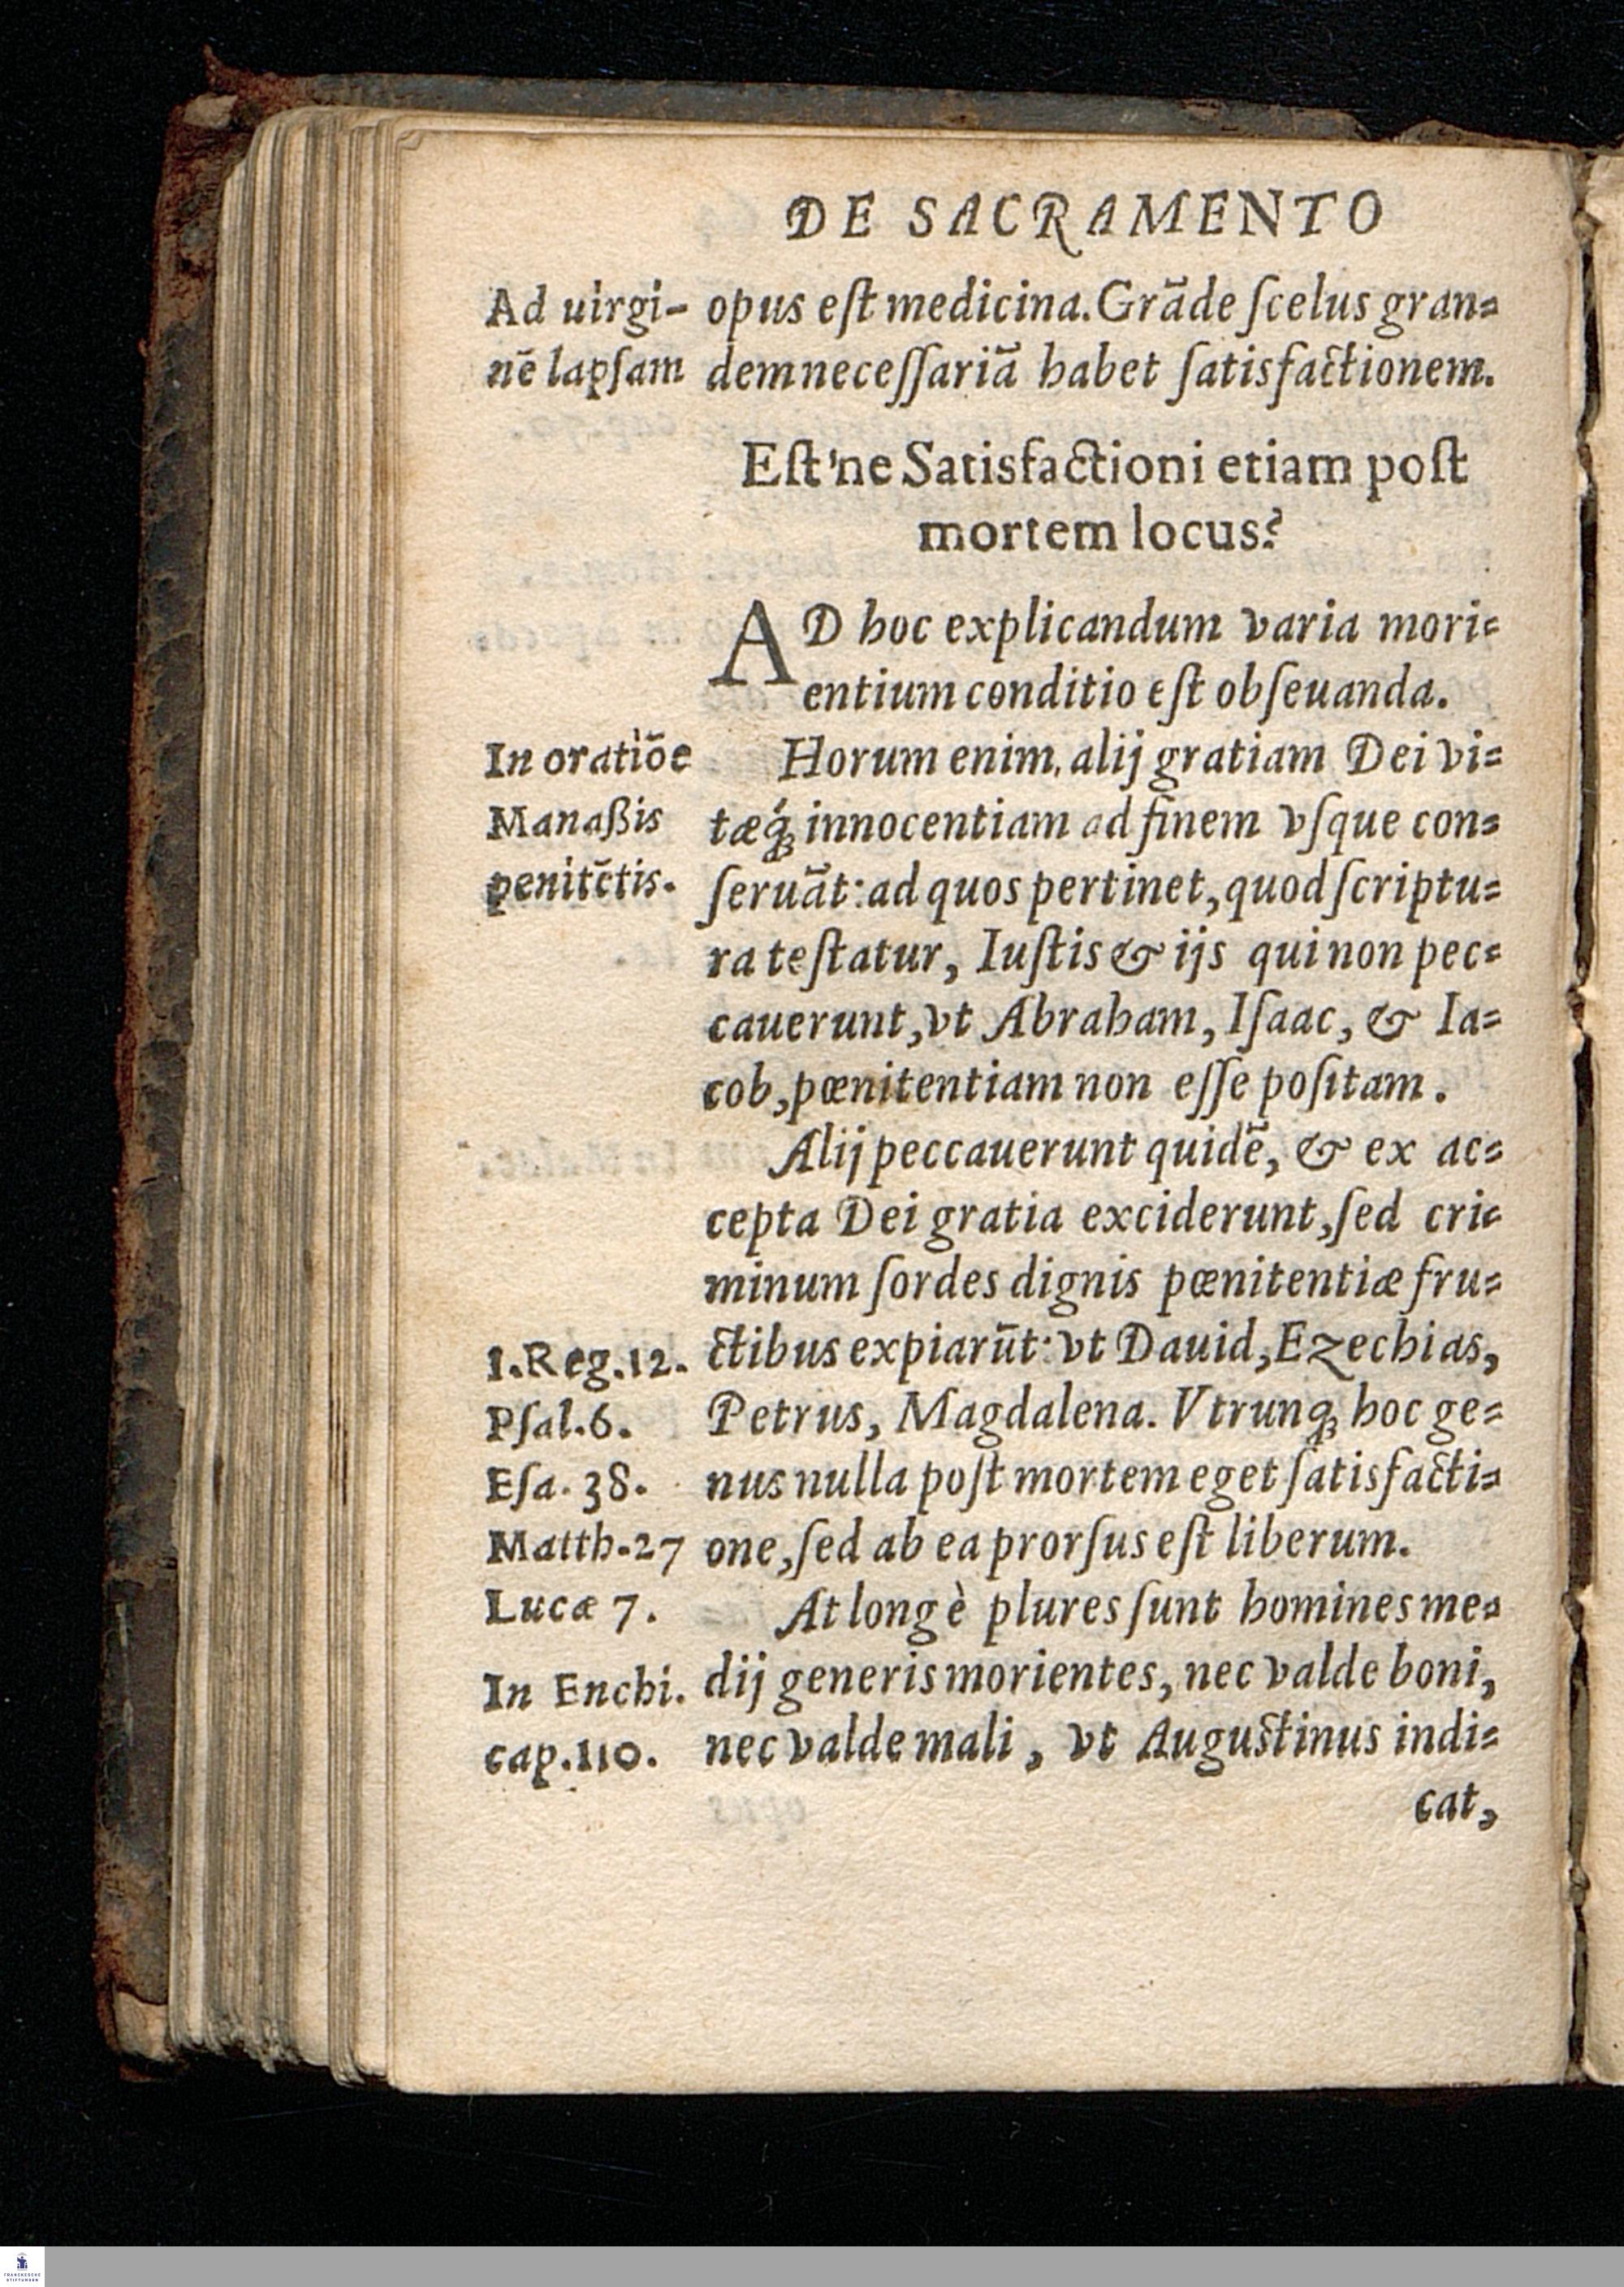 DE SACRAMENTO
Ad uirgi-
nē lapſam
opus eſt medicina. Grãde ſcelus gran=
dem neceſſariã habet ſatisfactionem.
Eſt'ne Satisfactioni etiam poſt
mortem locus?
AD hoc explicandum varia mori=
entium conditio eſt obſeuanda.
In oratiõe
Manaßis
penitẽtis.
Horum enim, alij gratiam Dei vi=
tæq́ꝫ innocentiam ad finem vſque con=
ſeruãt: ad quos pertinet, quod ſcriptu=
ra teſtatur, Iuſtis & ijs qui non pec=
cauerunt, vt Abraham, Iſaac, & Ia=
cob, pœnitentiam non eſſe poſitam.
Alij peccauerunt quidẽ, & ex ac=
cepta Dei gratia exciderunt, ſed cri=
minum ſordes dignis pœnitentiæ fru=
ctibus expiarũt: vt Dauid, Ezechias,
Petrus, Magdalena. Vtrunqꝫ hoc ge=
nus nulla poſt mortem eget ſatisfacti=
one, ſed ab ea prorſus eſt liberum.
1.Reg.12.
Pſal.6.
Eſa. 38.
Matth.27
Lucæ 7.
At longè plures ſunt homines me=
dij generis morientes, nec valde boni,
nec valde mali, vt Auguſtinus indi=
In Enchi.
cap.110.
cat,
FRANCKESCHE
STIFTUNGEN